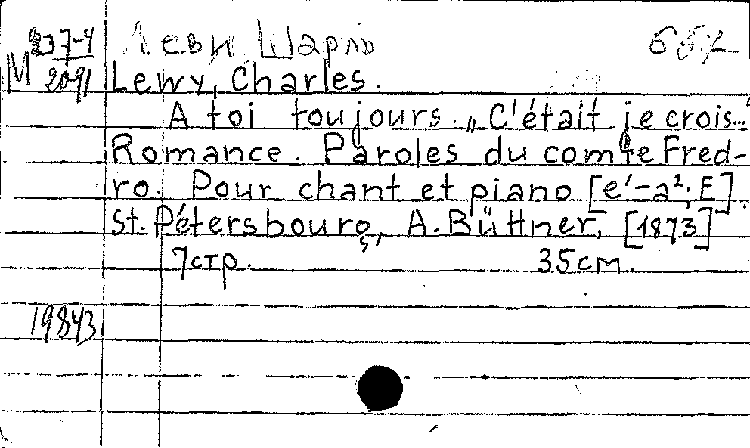 М 237-4 Леви Шарль
2091 Lewy, Charles.
A toi toujours. „C'était je crois...
Romance. Paroles du comte Fred-
ro. Pour chant et piano [e¹-a²; E].
St. Pétersbourg, A. Büttner, [1873]
7 стр. 35 см.
19843